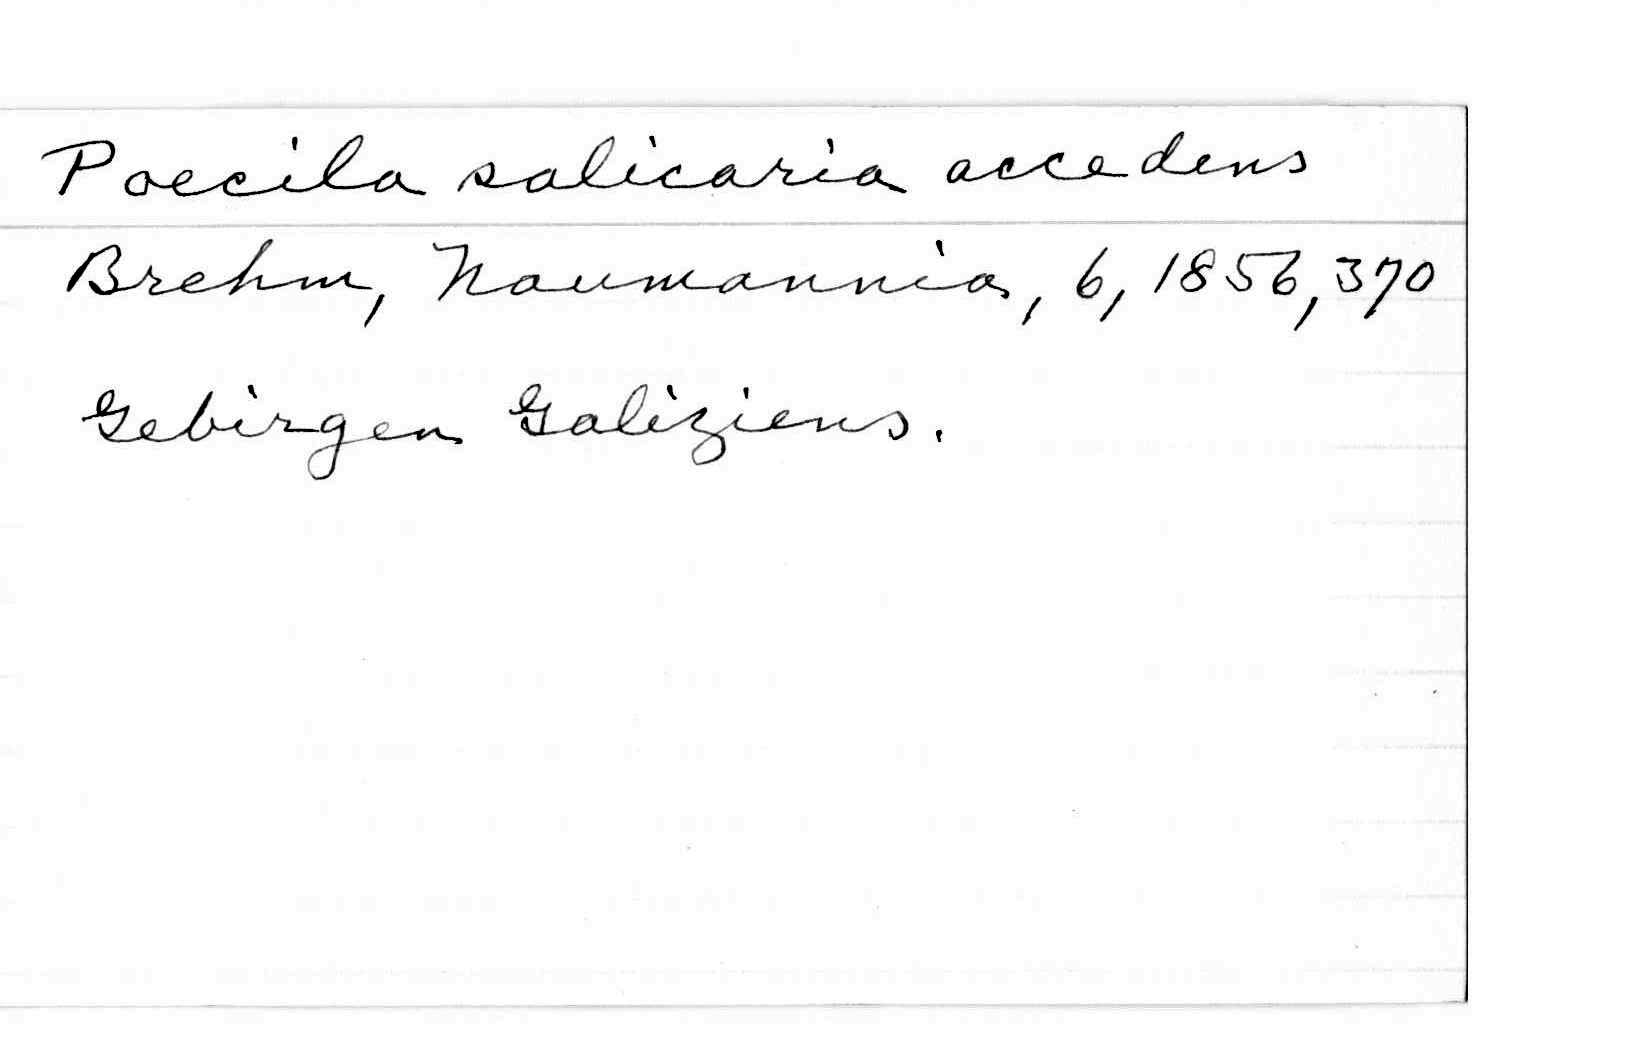 Poecila salicaria accedens
Brehm, Naumannia, 6, 1856, 370
Gebirgen Galiziens.